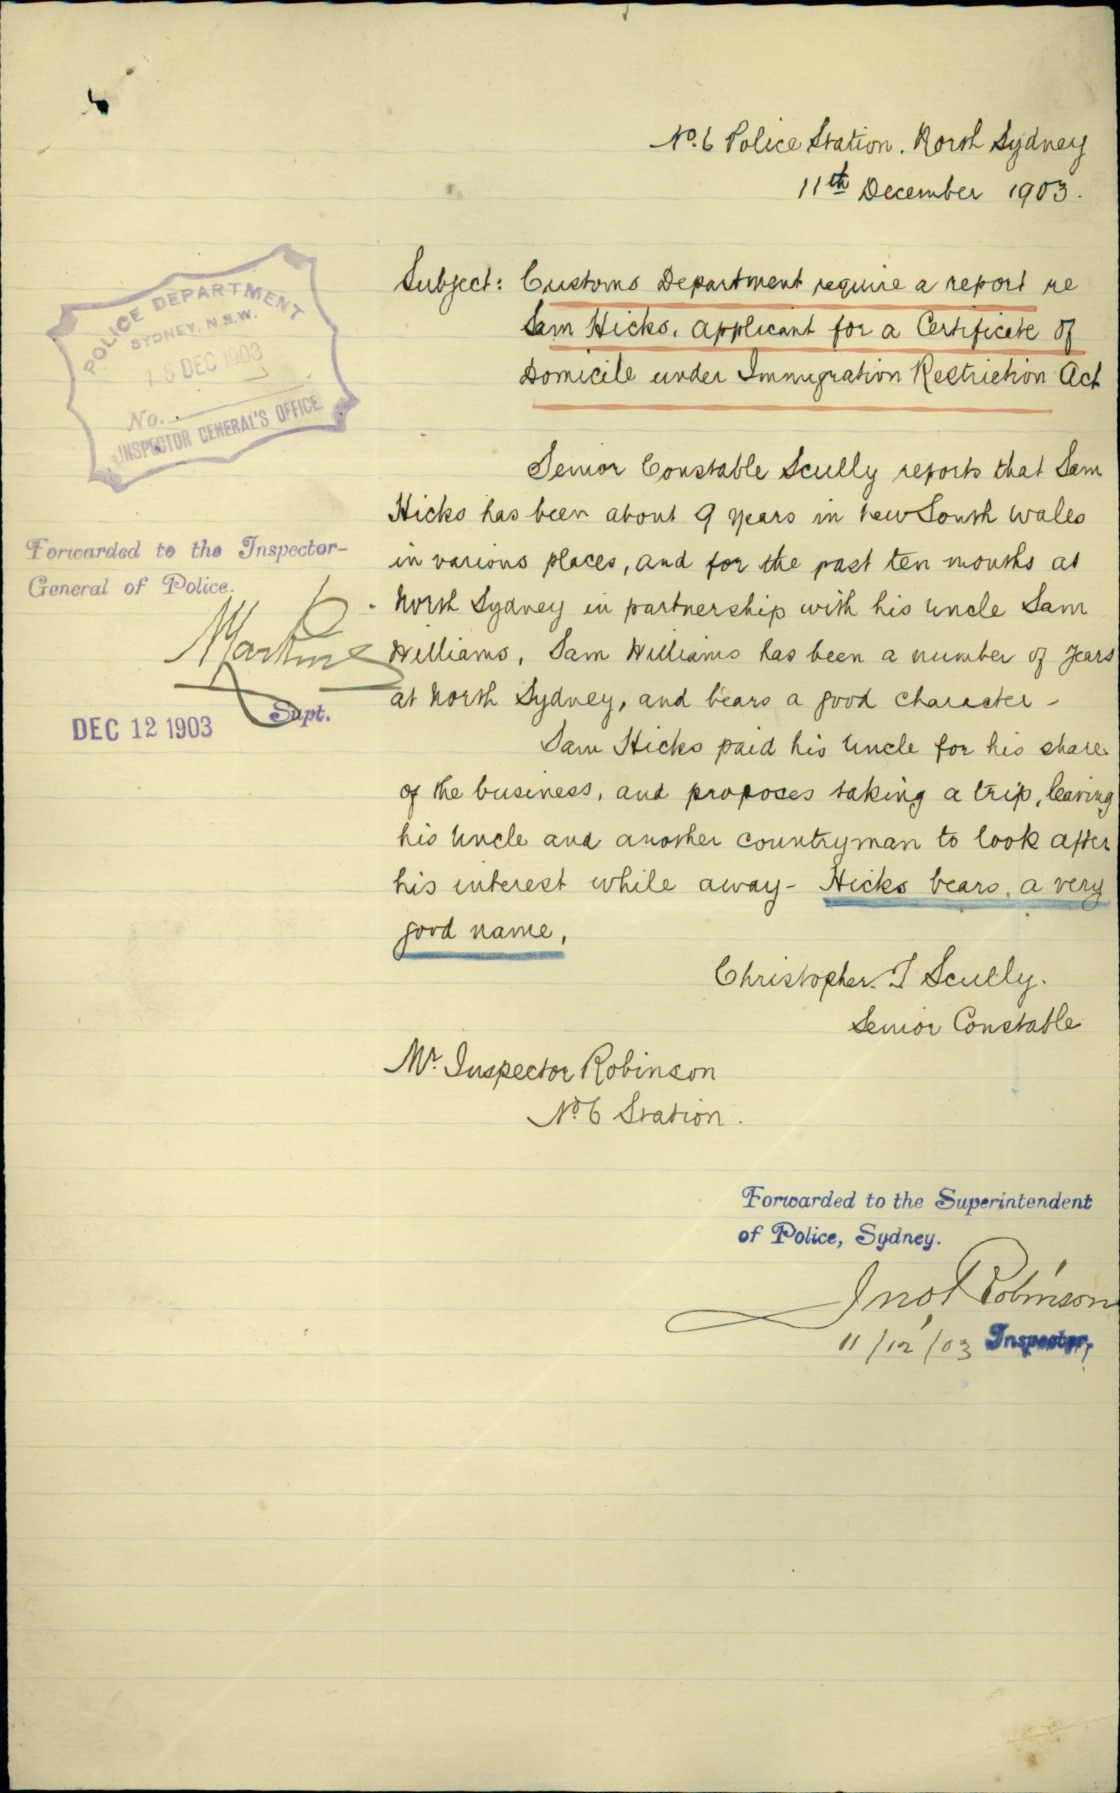 No. 6 Police Station. North Sydney
11th December 1903.
Subject: Customs Department require a report re
Sam Hicks, applicant for a Certificate of
Domicile under Immigration Restriction Act
POLICE DEPARTMENT
SYDNEY, N.S.W.
DEC 1903
No.
INSPECTOR GENERAL'S OFFICE
Senior Constable Scully reports that Sam
Hicks has been about 9 years in New South Wales
in various places, and for the past ten months at
North Sydney in partnership with his Uncle Sam
Williams, Sam Williams has been a number of years
at North Sydney, and bears a good character -
Sam Hicks paid his Uncle for his share
of the business, and proposes taking a trip, leaving
his Uncle and another countryman to look after
his interest while away - Hicks bears a very
good name,
Forwarded to the Inspector-
General of Police.
Supt.
DEC 12 1903
Christopher. J Scully.
Senior Constable
Mr. Inspector Robinson
No 6 Station.
Forwarded to the Superintendent
of Police, Sydney.
Jno Robinson
11/12/03 Inspector,